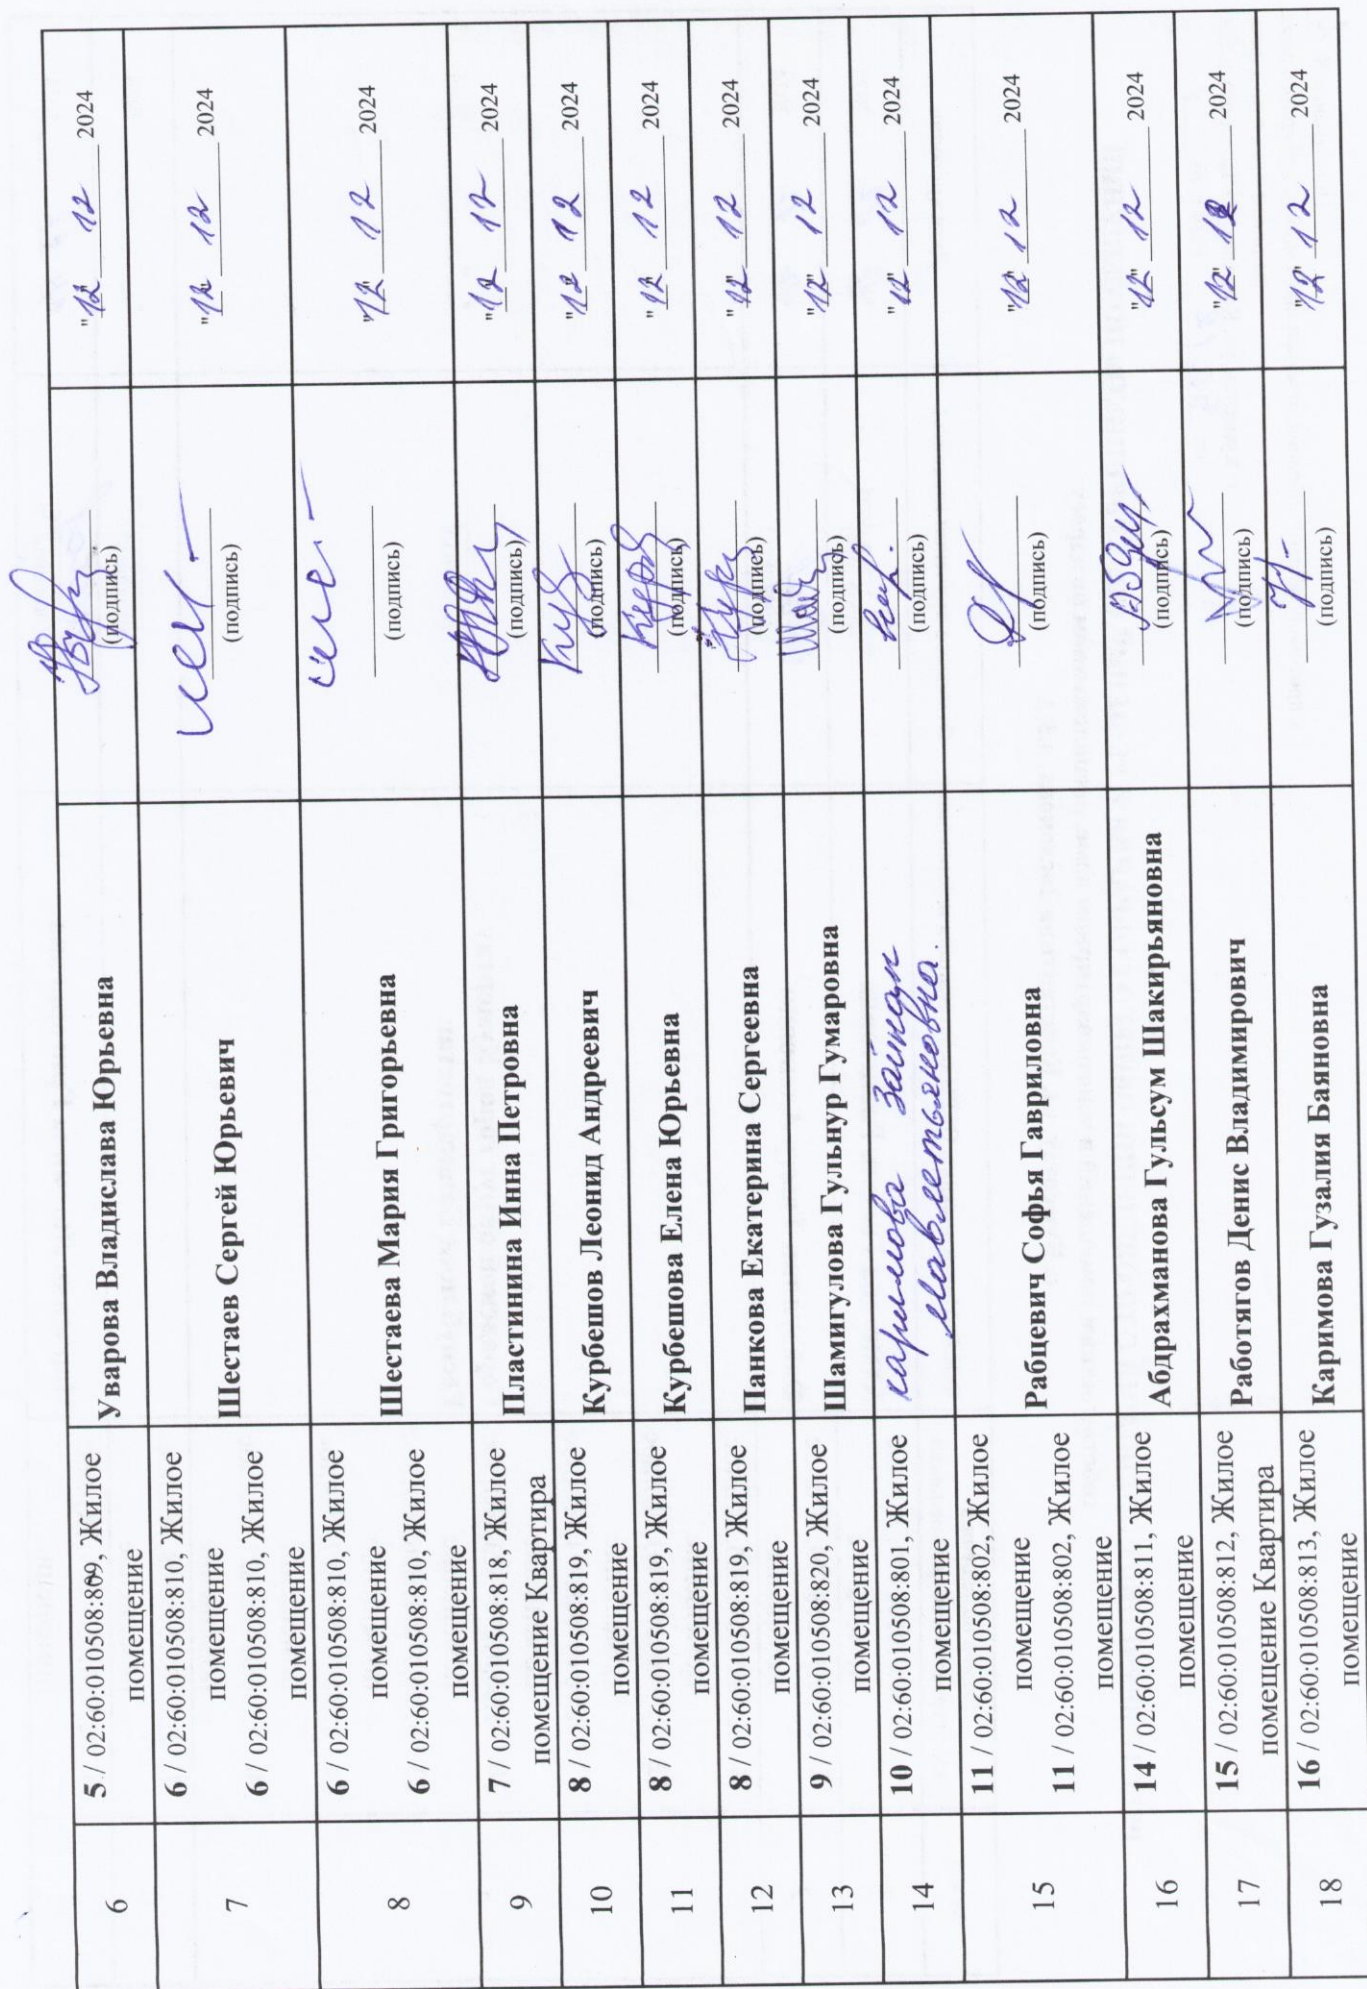 6
5 / 02:60:010508:809, Жилое
помещение
Уварова Владислава Юрьевна
(подпись)
"12" 12 2024
7
6 / 02:60:010508:810, Жилое
помещение
6 / 02:60:010508:810, Жилое
помещение
Шестаев Сергей Юрьевич
(подпись)
"12" 12 2024
8
6 / 02:60:010508:810, Жилое
помещение
6 / 02:60:010508:810, Жилое
помещение
Шестаева Мария Григорьевна
(подпись)
"12" 12 2024
9
7 / 02:60:010508:818, Жилое
помещение Квартира
Пластинина Инна Петровна
(подпись)
"12" 12 2024
10
8 / 02:60:010508:819, Жилое
помещение
Курбешов Леонид Андреевич
(подпись)
"12" 12 2024
11
8 / 02:60:010508:819, Жилое
помещение
Курбешова Елена Юрьевна
(подпись)
"12" 12 2024
12
8 / 02:60:010508:819, Жилое
помещение
Панкова Екатерина Сергеевна
(подпись)
"12" 12 2024
13
9 / 02:60:010508:820, Жилое
помещение
Шамигулова Гульнур Гумаровна
(подпись)
"12" 12 2024
14
10 / 02:60:010508:801, Жилое
помещение
каримова Зайтун
Мавлетьяновна.
(подпись)
"12" 12 2024
15
11 / 02:60:010508:802, Жилое
помещение
11 / 02:60:010508:802, Жилое
помещение
Рабцевич Софья Гавриловна
(подпись)
"12" 12 2024
16
14 / 02:60:010508:811, Жилое
помещение
Абдрахманова Гульсум Шакирьяновна
(подпись)
"12" 12 2024
17
15 / 02:60:010508:812, Жилое
помещение Квартира
Работягов Денис Владимирович
(подпись)
"12" 12 2024
18
16 / 02:60:010508:813, Жилое
помещение
Каримова Гузалия Баяновна
(подпись)
"12" 12 2024